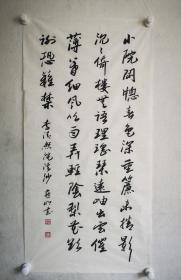 小院閑窗春色深重簾未捲影
沉々倚樓無語理瑶琴遠岫出雲催
薄暮細風吹雨弄輕陰梨花欲
謝恐難禁 李清照浣溪沙 書